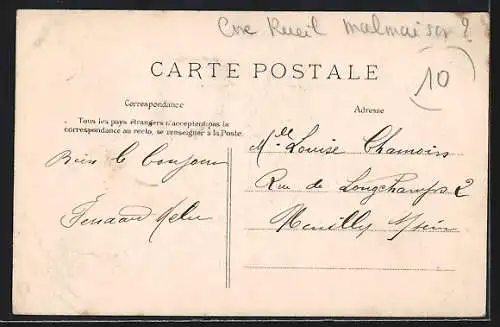 Cne Rueil Malmaison ?
10
CARTE POSTALE
Correspondance
Tous les pays étrangers n'acceptent pas la
correspondance au recto, se renseigner à la Poste
Adresse
Bien le bonjour
Mlle Louise Chamois
Rue de Longchamps 2
Neuilly s/Seine